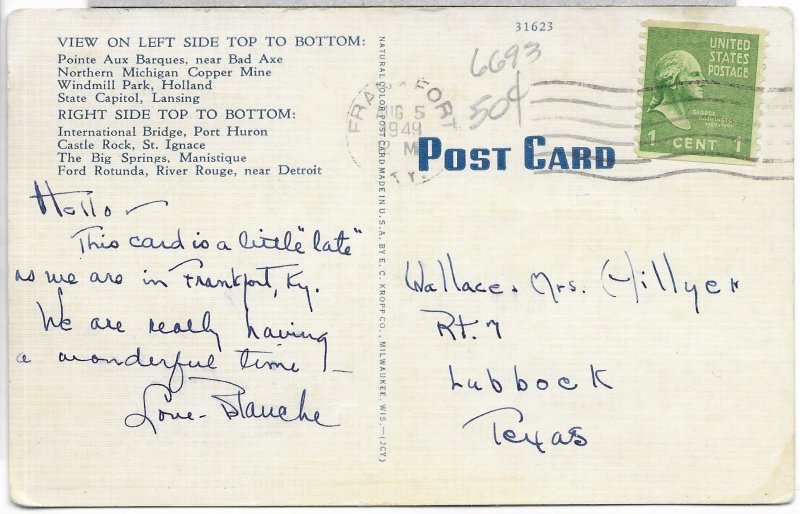 31623
VIEW ON LEFT SIDE TOP TO BOTTOM:
Pointe Aux Barques, near Bad Axe
Northern Michigan Copper Mine
Windmill Park, Holland
State Capitol, Lansing
RIGHT SIDE TOP TO BOTTOM:
International Bridge, Port Huron
Castle Rock, St. Ignace
The Big Springs, Manistique
Ford Rotunda, River Rouge, near Detroit
Hello –
This card is a little "late"
as we are in Frankfort, Ky.
We are really having
a wonderful time –
Love - Blanche
NATURAL COLOR POST CARD MADE IN U.S.A. BY E. C. KROPP CO., MILWAUKEE, WIS.—(JCY)
6693
50¢
FRANKFORT
AUG 5
1949
M
KY.
POST CARD
UNITED
STATES
POSTAGE
GEORGE
WASHINGTON
1789-1797
1 CENT 1
Wallace. Mrs. Hillyer
Rt. 7
Lubbock
Texas